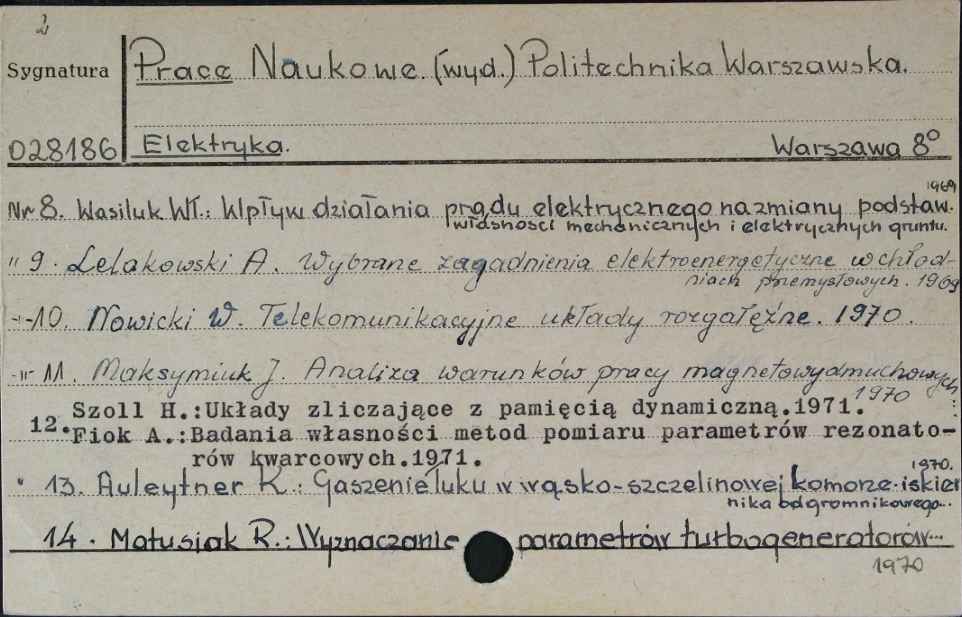 2
Sygnatura
Prace Naukowe. (wyd.) Politechnika Warszawska.
028186
Elektryka.
Warszawa 8º
Nr 8. Wasiluk Wł.: Wpływ działania prądu elektrycznego na zmiany podstaw. 1969
własności mechanicznych i elektrycznych gruntu.
" 9. Lelakowski A. Wybrane zagadnienia elektroenergetyczne w chłod-
niach przemysłowych. 1969
-"- 10. Nowicki W. Telekomunikacyjne układy rozgałęźne. 1970.
-"- 11. Maksymiuk J. Analiza warunków pracy magnetowydmuchowych
1970 ...
12. Szoll H.:Układy zliczające z pamięcią dynamiczną.1971.
Fiok A.:Badania własności metod pomiaru parametrów rezonato-
rów kwarcowych.1971.
" 13. Auleytner K.: Gaszenie łuku w wąsko-szczelinowej komorze iskier 1970.
nika odgromnikowego...
14. Matusiak R.: Wyznaczanie parametrów turbogeneratorów...
1970